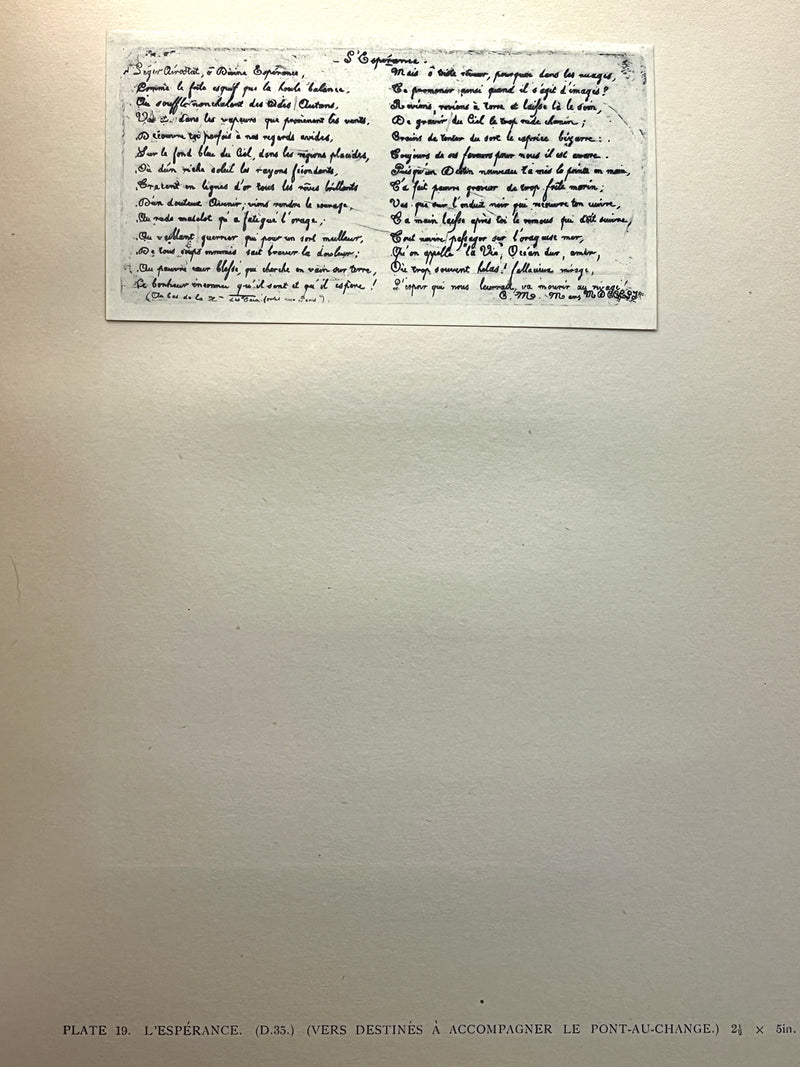 L'Espérance.
Léger Aérostat, ô Divine Espérance,
Comme le frêle esquif que la houle balance,
Au souffle nonchalant des Autans,
Vas dans les vapeurs que promènent les vents,
Découvre toi parfois à nos regards avides,
Sur le fond bleu du Ciel, dans les régions placides,
Où d'un riche soleil les rayons fécondants,
Tracent en lignes d'or tous les rêves brillants
D'un douteux Avenir; viens rendre le courage,
Au rude matelot qu'a fatigué l'orage,
Au vaillant guerrier qui pour un sort meilleur,
De tous coups ennemis sait braver la douleur;
Au pauvre cœur blessé, qui cherche en vain sur terre,
Ce bonheur inconnu qu'il sent et qu'il espère !
(Au bas de la
Mais ô triste rêveur, pourquoi dans les nuages,
Te promener ainsi quand il s'agit d'images ?
Reviens, reviens à terre et laisse là le soin,
De gravir du Ciel le trop rude chemin ;
Crains de tenter du sort le caprice bizarre :
Toujours de ses faveurs pour nous il est avare.
Puisqu'un Destin nouveau t'a mis la pointe en main,
T'a fait pauvre graveur de trop frêle marin ;
Vas que sur l'enduit noir qui recouvre ton cuivre,
Ta main laisse après toi le remous qui doit suivre,
Tout navire passager sur l'orageuse mer,
Qu'on appelle la Vie, Océan dur, amer,
Où trop souvent hélas ! fallacieux mirage,
L'espoir qui nous leurrait, va mourir au rivage !
C. M.
PLATE 19. L'ESPÉRANCE. (D.35.) (VERS DESTINÉS À ACCOMPAGNER LE PONT-AU-CHANGE.) 2½ × 5in.